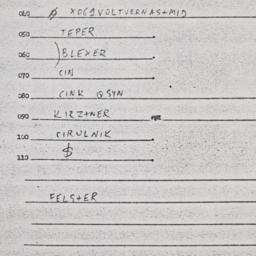 040 $ X069VOLTVERNAS+MID
050 TEPER
060 )BLEXER
070 CIN
080 CINK QSYN
090 KIRZTNER
100 CIRULNIK
110 $
FELS+ER